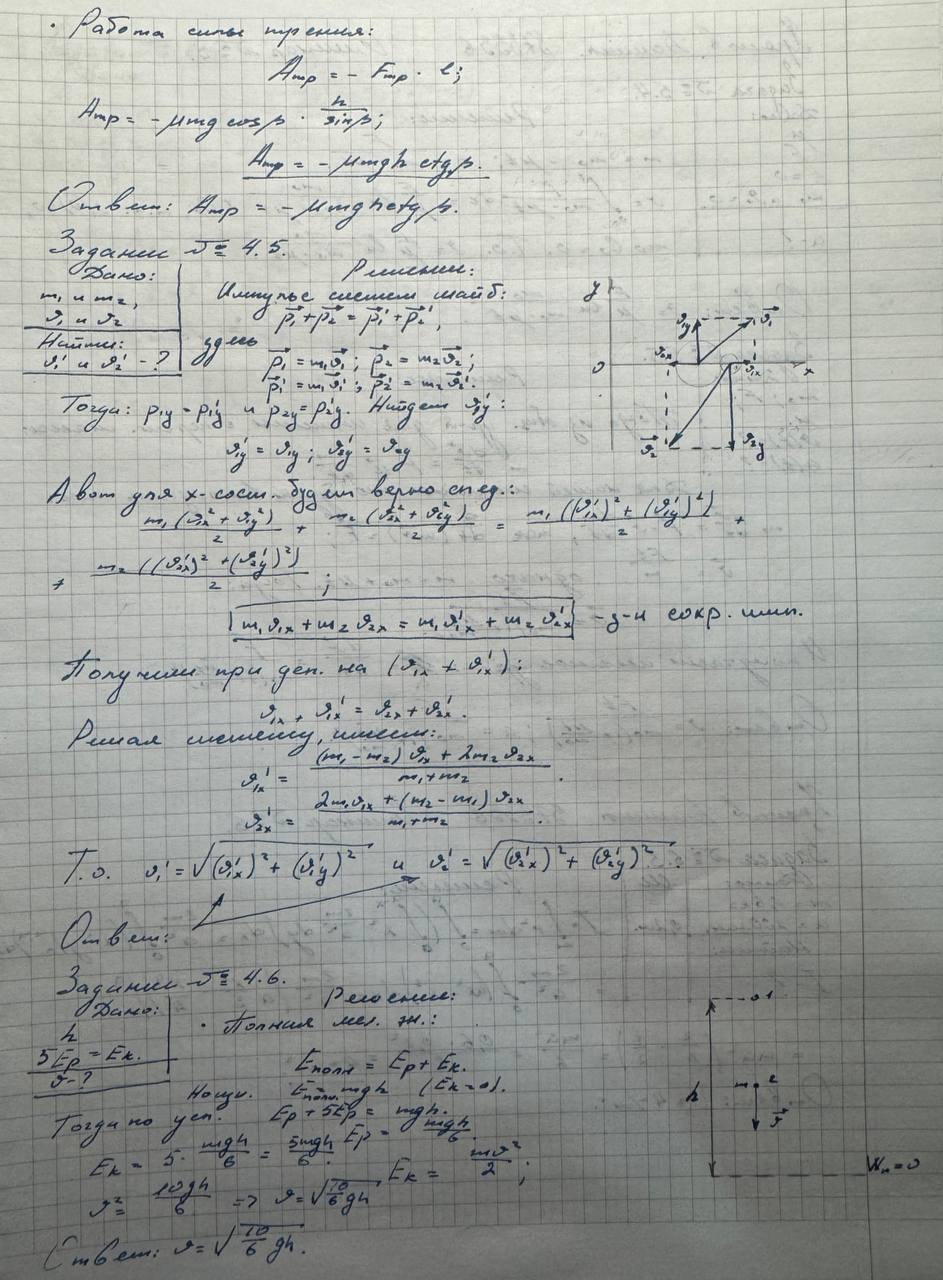 · Работа силы трения:
Aтр = - Fтр · l;
Aтр = - μmg cosβ · h/sinβ;
Aтр = - μmgh ctgβ.
Ответ: Aтр = - μmgh ctgβ.
Задание № 4.5.
Дано:
m₁ и m₂,
ϑ₁ и ϑ₂
Найти:
ϑ₁' и ϑ₂' - ?
Решение:
Импульс систем шайб:
p⃗₁ + p⃗₂ = p⃗₁' + p⃗₂',
здесь
p⃗₁ = m₁ϑ⃗₁; p⃗₂ = m₂ϑ⃗₂;
p⃗₁' = m₁ϑ⃗₁'; p⃗₂' = m₂ϑ⃗₂'.
y
ϑ₁y
ϑ⃗₁
ϑ₂x
0
ϑ₁x
x
ϑ⃗₂
ϑ₂y
Тогда: p₁y = p₁y' и p₂y = p₂y'. Найдем ϑ₁y':
ϑ₁y' = ϑ₁y; ϑ₂y' = ϑ₂y
А вот для x-сост. будет верно след.:
m₁(ϑ₁x² + ϑ₁y²)/2 + m₂(ϑ₂x² + ϑ₂y²)/2 = m₁((ϑ₁x')² + (ϑ₁y')²)/2 +
+ m₂((ϑ₂x')² + (ϑ₂y')²)/2;
m₁ϑ₁x + m₂ϑ₂x = m₁ϑ₁x' + m₂ϑ₂x' - з-н сохр. имп.
Получили при дел. на (ϑ₁x + ϑ₁x'):
ϑ₁x + ϑ₁x' = ϑ₂x + ϑ₂x'.
Решая систему, имеем:
ϑ₁x' = (m₁ - m₂)ϑ₁x + 2m₂ϑ₂x / m₁ + m₂.
ϑ₂x' = 2m₁ϑ₁x + (m₂ - m₁)ϑ₂x / m₁ + m₂.
Т.о. ϑ₁' = √((ϑ₁x')² + (ϑ₁y')²) и ϑ₂' = √((ϑ₂x')² + (ϑ₂y')²).
Ответ:
Задание № 4.6.
Дано:
h
5Ep = Eк.
ϑ - ?
Решение:
· Полная мех. эн.:
Eполн = Ep + Eк.
Eполн. = mgh (Eк = 0).
Тогда по усл. Ep + 5Ep = mgh.
Ep = mgh/6.
Eк = 5 · mgh/6 = 5mgh/6. Eк = mϑ²/2;
ϑ² = 10gh/6 => ϑ = √(10/6 gh)
Ответ: ϑ = √(10/6 gh).
1
h
m
2
ϑ⃗
Wп = 0